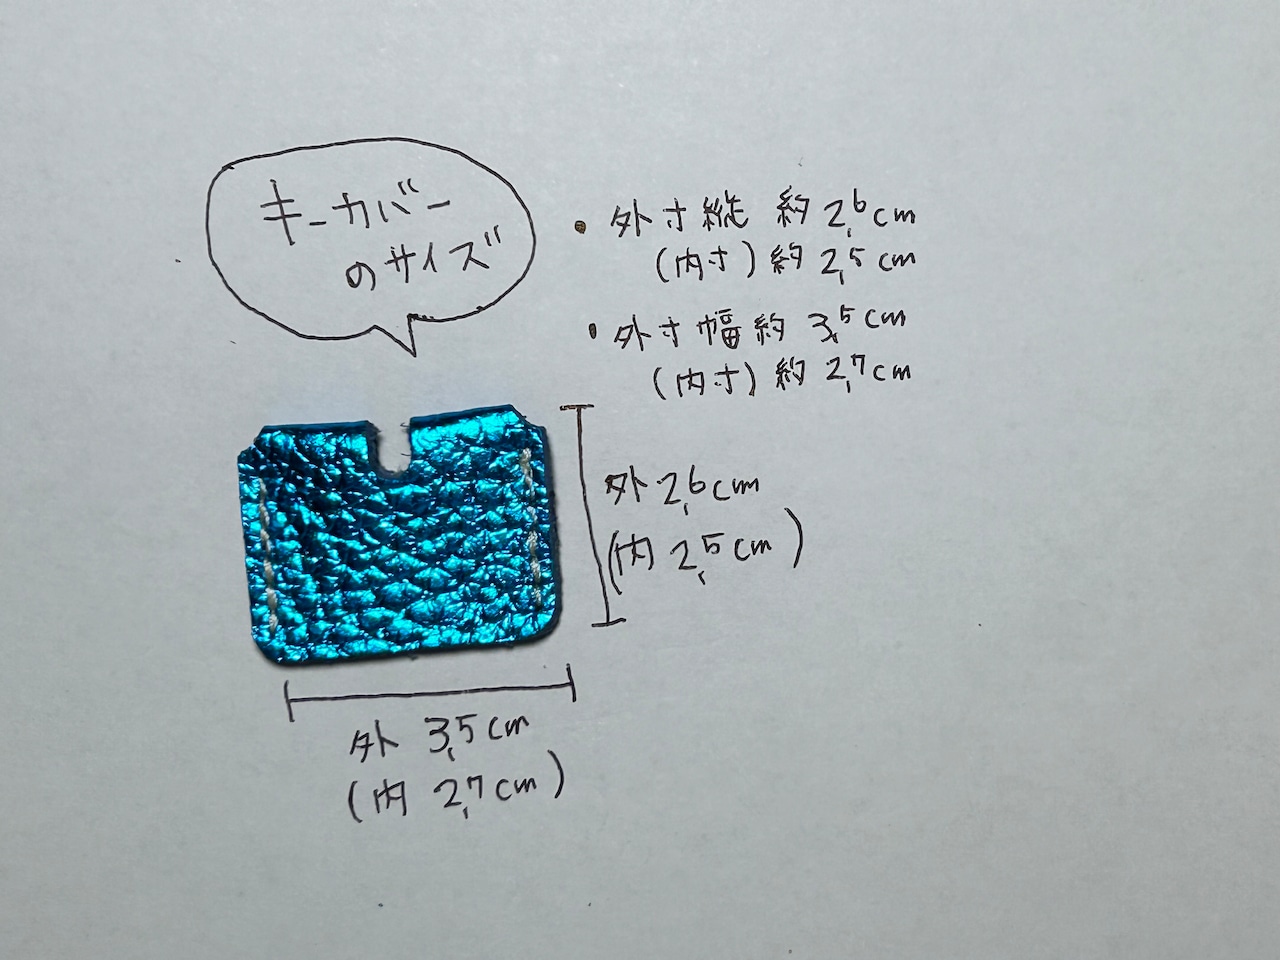 キーカバー
のサイズ
・外寸縦 約2,6cm
(内寸)約2,5cm
・外寸幅約3,5cm
(内寸)約2,7cm
外2,6cm
(内2,5cm)
外 3,5cm
(内 2,7cm)